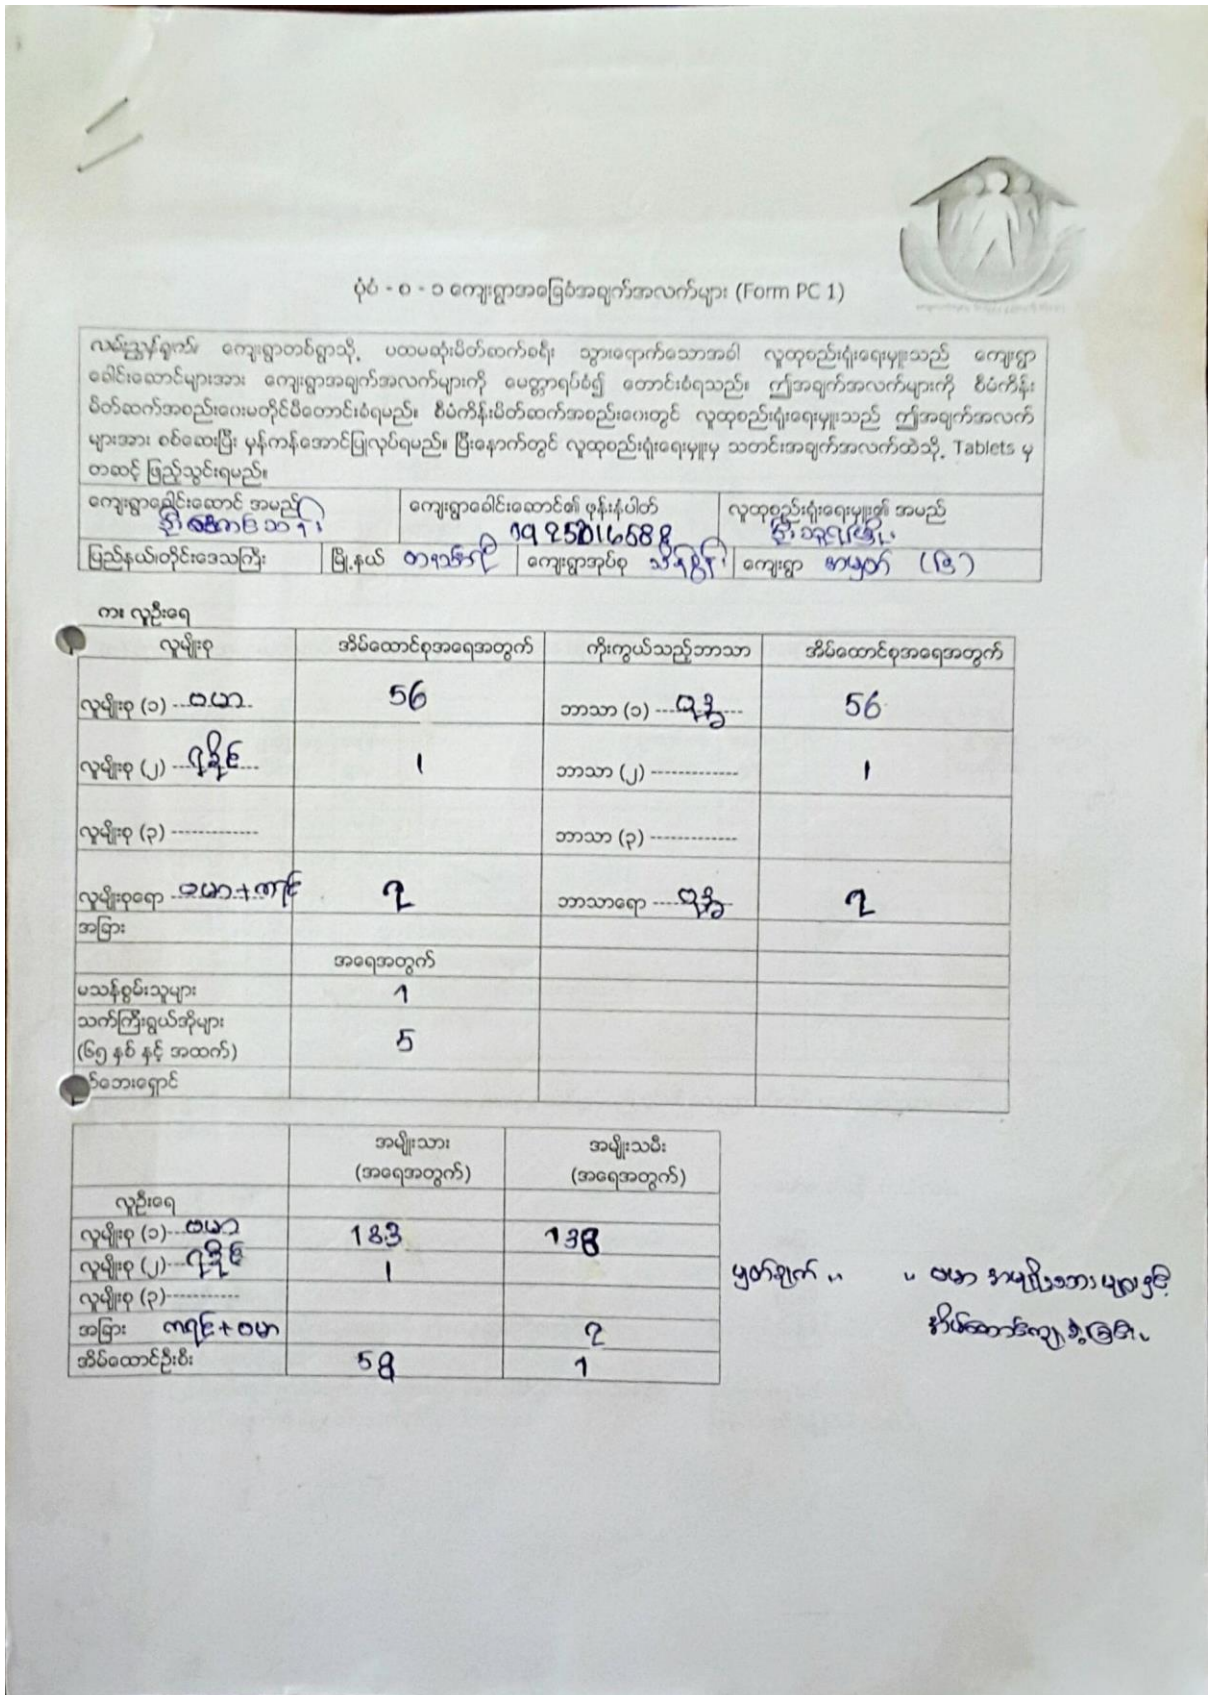 ပုံစံ - စ - ၁ ကျေးရွာအခြေခံအချက်အလက်များ (Form PC 1)
လမ်းညွှန်ချက်၊ ကျေးရွာတစ်ရွာသို့ ပထမဆုံးမိတ်ဆက်ခရီး သွားရောက်သောအခါ လူထုစည်းရုံးရေးမှူးသည် ကျေးရွာ
ခေါင်းဆောင်များအား ကျေးရွာအချက်အလက်များကို မေတ္တာရပ်ခံ၍ တောင်းခံရသည်။ ဤအချက်အလက်များကို စီမံကိန်း
မိတ်ဆက်အစည်းဝေးမတိုင်မီတောင်းခံရမည်။ စီမံကိန်းမိတ်ဆက်အစည်းဝေးတွင် လူထုစည်းရုံးရေးမှူးသည် ဤအချက်အလက်
များအား စစ်ဆေးပြီး မှန်ကန်အောင်ပြုလုပ်ရမည်။ ပြီးနောက်တွင် လူထုစည်းရုံးရေးမှူးမှ သတင်းအချက်အလက်ထဲသို့ Tablets မှ
တဆင့် ဖြည့်သွင်းရမည်။
ကျေးရွာခေါင်းဆောင် အမည် ကျေးရွာခေါင်းဆောင်၏ ဖုန်းနံပါတ် လူထုစည်းရုံးရေးမှူး၏ အမည်
ပြည်နယ်/တိုင်းဒေသကြီး မြို့နယ် တနင်္သာရီ ကျေးရွာအုပ်စု ကျေးရွာ
က။ လူဦးရေ
လူမျိုးစု အိမ်ထောင်စုအရေအတွက် ကိုးကွယ်သည့်ဘာသာ အိမ်ထောင်စုအရေအတွက်
လူမျိုးစု (၁) ဗမာ 56 ဘာသာ (၁) ဗုဒ္ဓ 56
လူမျိုးစု (၂) ရခိုင် 1 ဘာသာ (၂) ------------- 1
လူမျိုးစု (၃) ------------- ဘာသာ (၃) -------------
လူမျိုးစုရော ဗမာ+ကရင် 2 ဘာသာရော ဗုဒ္ဓ 2
အခြား
အရေအတွက်
မသန်စွမ်းသူများ 1
သက်ကြီးရွယ်အိုများ
(၆၅ နှစ် နှင့် အထက်) 5
စစ်ဘေးရှောင်
အမျိုးသား အမျိုးသမီး
(အရေအတွက်) (အရေအတွက်)
လူဦးရေ
လူမျိုးစု (၁) ဗမာ 133 138
လူမျိုးစု (၂) ရခိုင် 1
လူမျိုးစု (၃)-----------
အခြား ကရင်+ဗမာ 2
အိမ်ထောင်ဦးစီး 58 1
မှတ်ချက် ။ ။ ဗမာ အမျိုးသားများနှင့်